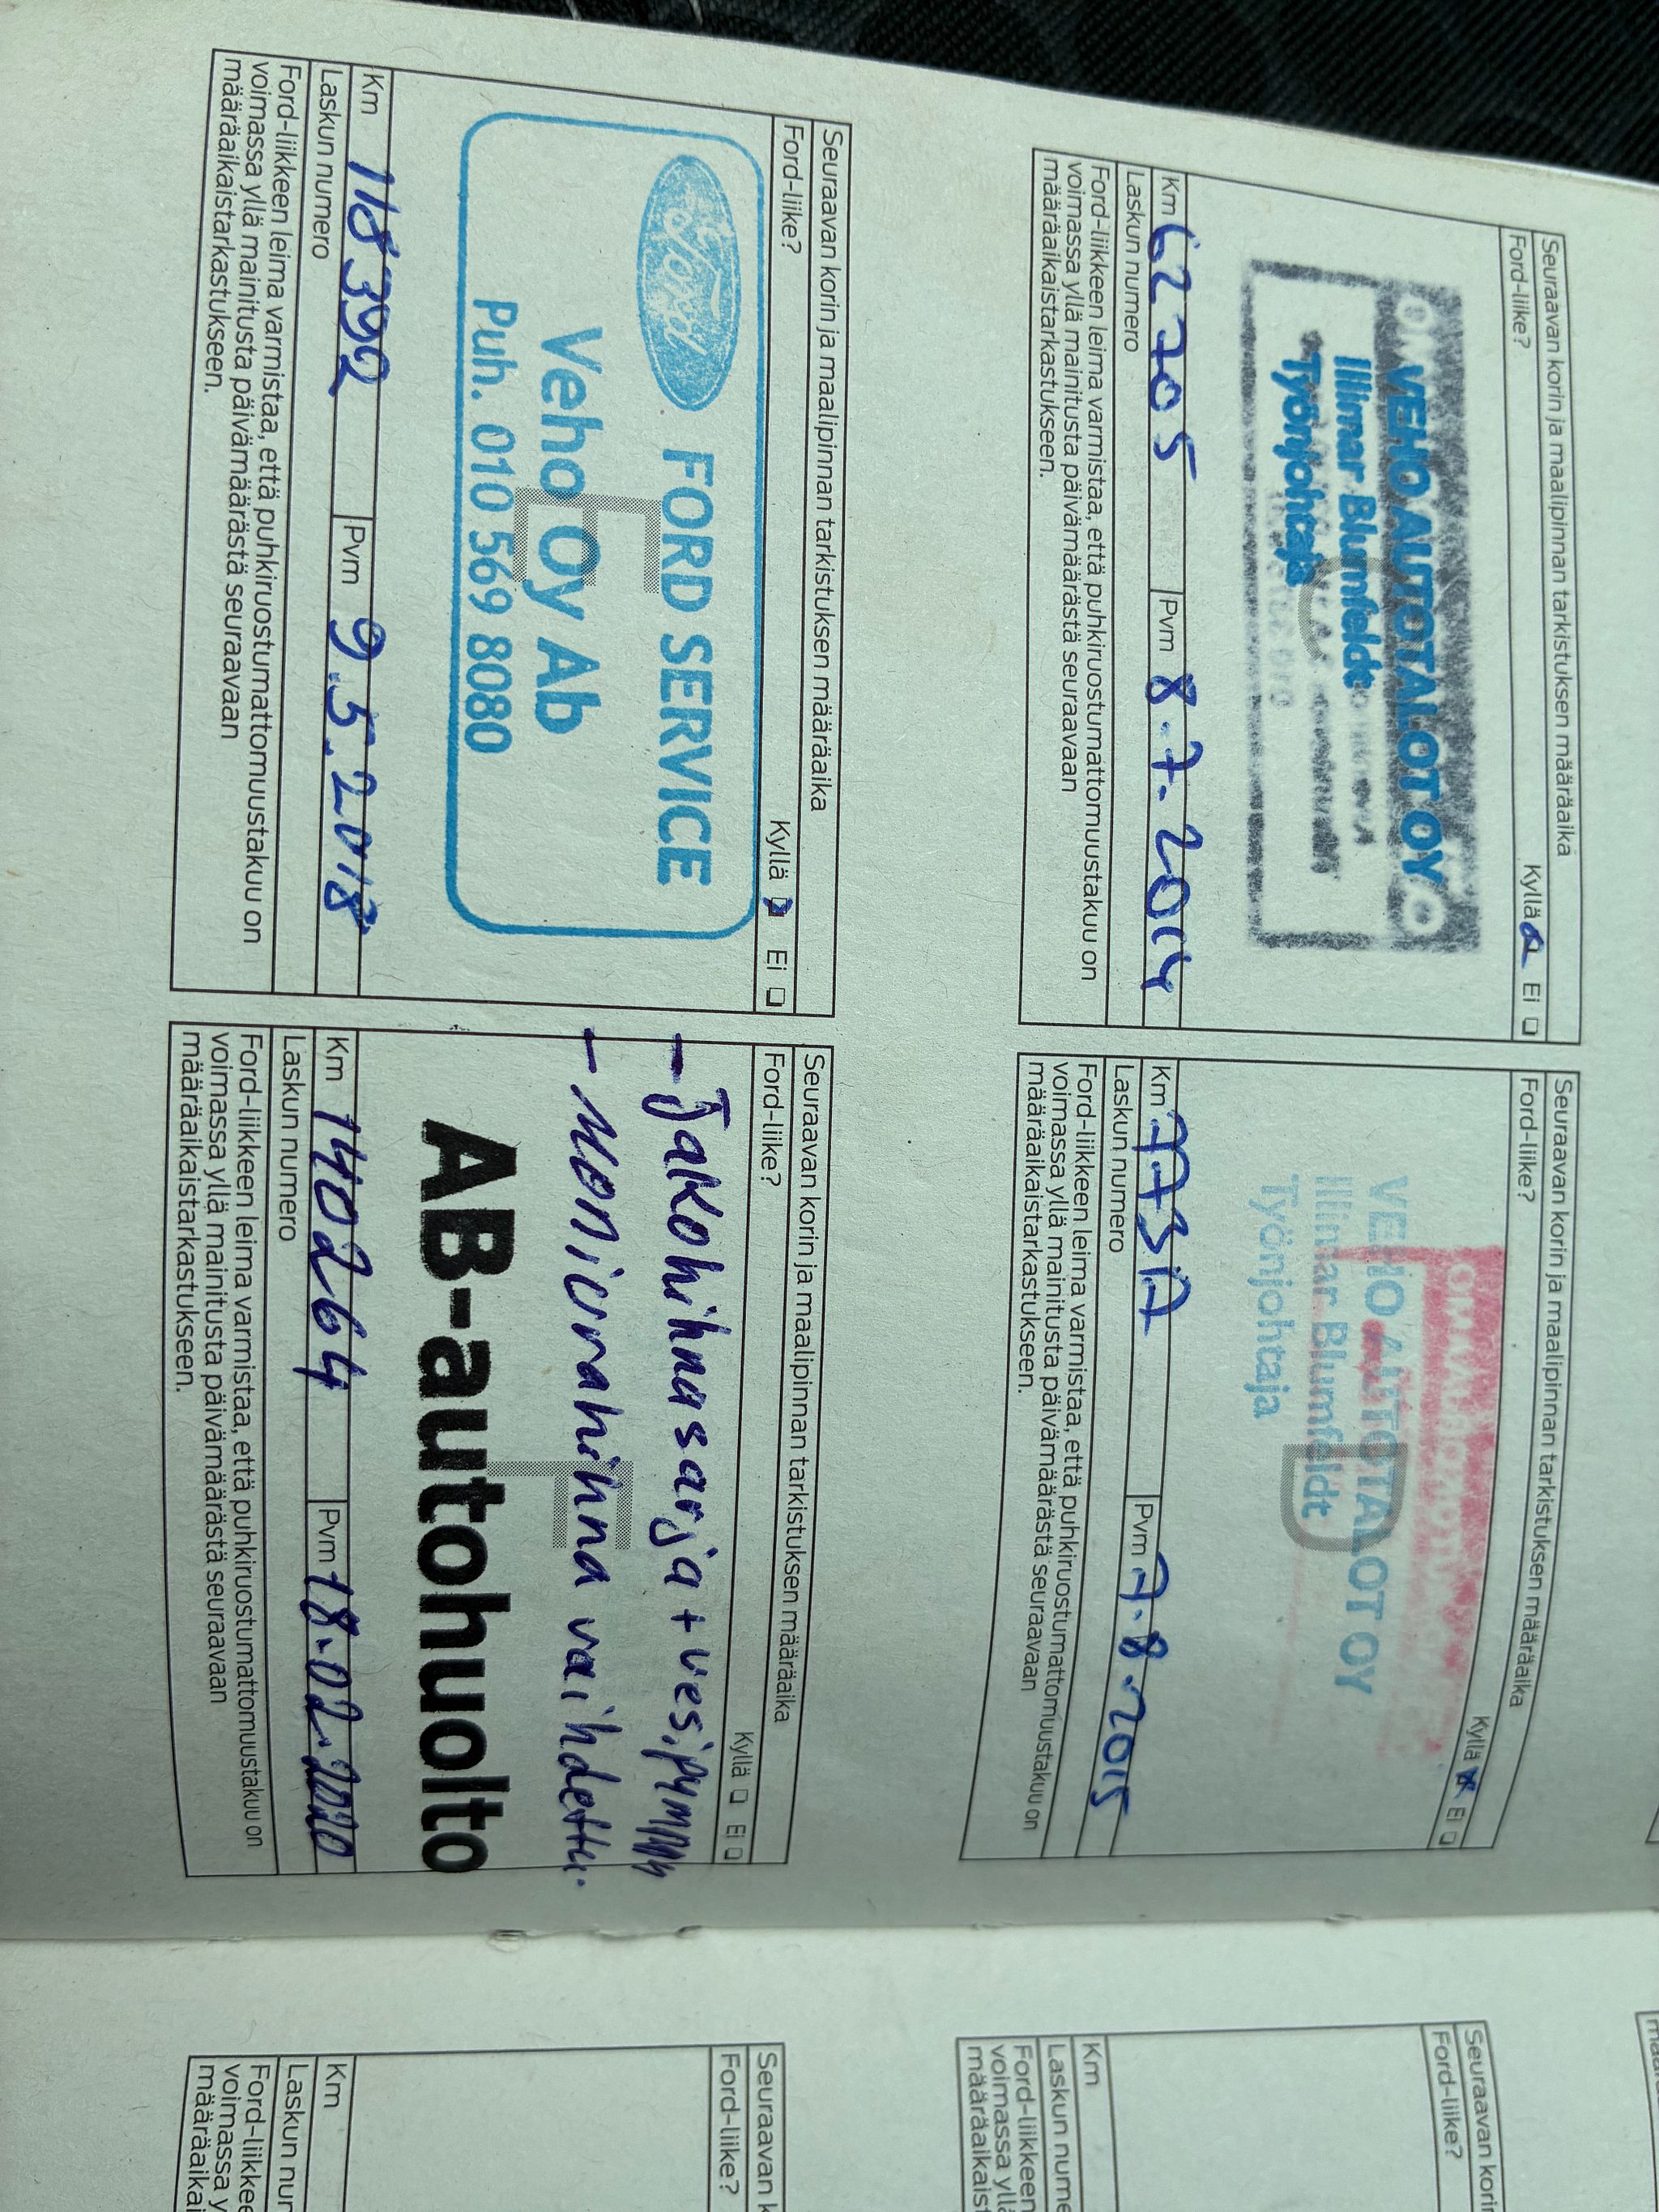 Seuraavan korin ja maalipinnan tarkistuksen määräaika
Ford-liike? Kyllä Ei
VEHO AUTOTALOT OY
Ilmar Blumfeldt
Työnjohtaja
Km 62705 Pvm 8.7.2014
Laskun numero
Ford-liikkeen leima varmistaa, että puhkiruostumattomuustakuu on
voimassa yllä mainitusta päivämäärästä seuraavaan
määräaikaistarkastukseen.
Seuraavan korin ja maalipinnan tarkistuksen määräaika
Ford-liike? Kyllä Ei
VEHO AUTOTALOT OY
Ilmar Blumfeldt
Työnjohtaja
Km 77317 Pvm 7.8.2015
Laskun numero
Ford-liikkeen leima varmistaa, että puhkiruostumattomuustakuu on
voimassa yllä mainitusta päivämäärästä seuraavaan
määräaikaistarkastukseen.
Seuraavan korin ja maalipinnan tarkistuksen määräaika
Ford-liike? Kyllä Ei
Ford FORD SERVICE
Veho Oy Ab
Puh. 010 569 8080
Km 118392 Pvm 9.5.2018
Laskun numero
Ford-liikkeen leima varmistaa, että puhkiruostumattomuustakuu on
voimassa yllä mainitusta päivämäärästä seuraavaan
määräaikaistarkastukseen.
Seuraavan korin ja maalipinnan tarkistuksen määräaika
Ford-liike? Kyllä Ei
- Jakohihnasarja + vesipymppy
- Moniurahihna vaihdettu.
AB-autohuolto
Km 140264 Pvm 18.02.2020
Laskun numero
Ford-liikkeen leima varmistaa, että puhkiruostumattomuustakuu on
voimassa yllä mainitusta päivämäärästä seuraavaan
määräaikaistarkastukseen.
Seuraavan kori
Ford-liike?
Km
Laskun nume
Ford-liikkeen
voimassa yll
määräaikaist
Seuraavan k
Ford-liike?
Km
Laskun nur
Ford-liikkee
voimassa y
määräaikai